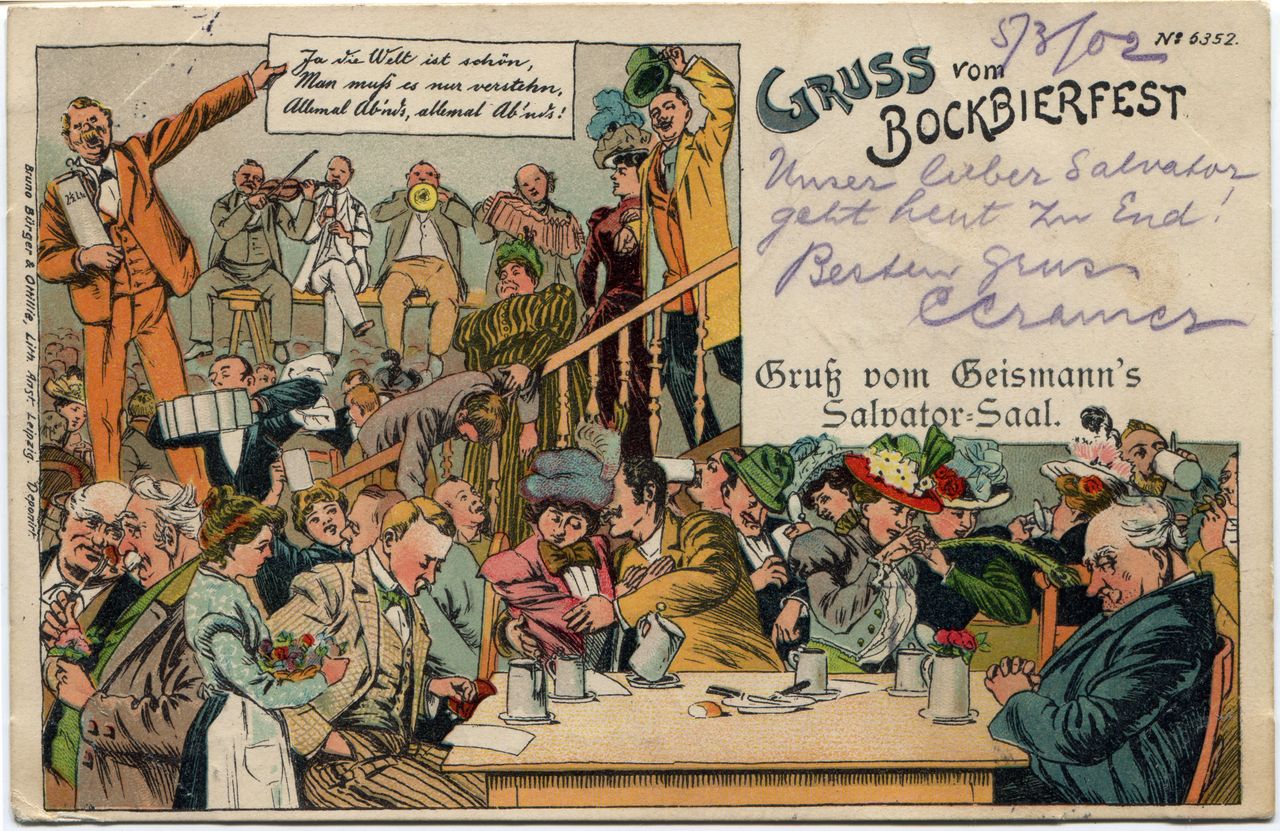 Ja die Welt ist schön,
Man muß es nur verstehn,
Allemal Ab'nds, allemal Ab'nds!
5/3/02
No 6352.
GRUSS vom
BOCKBIERFEST
Unser lieber Salvator
geht heut zu End!
Besten Gruss
CCramer
Gruß vom Geismann's
Salvator-Saal.
2½ Lt.
Bruno Bürger & Ottilie, Lith. Anst. Leipzig. Deponirt.